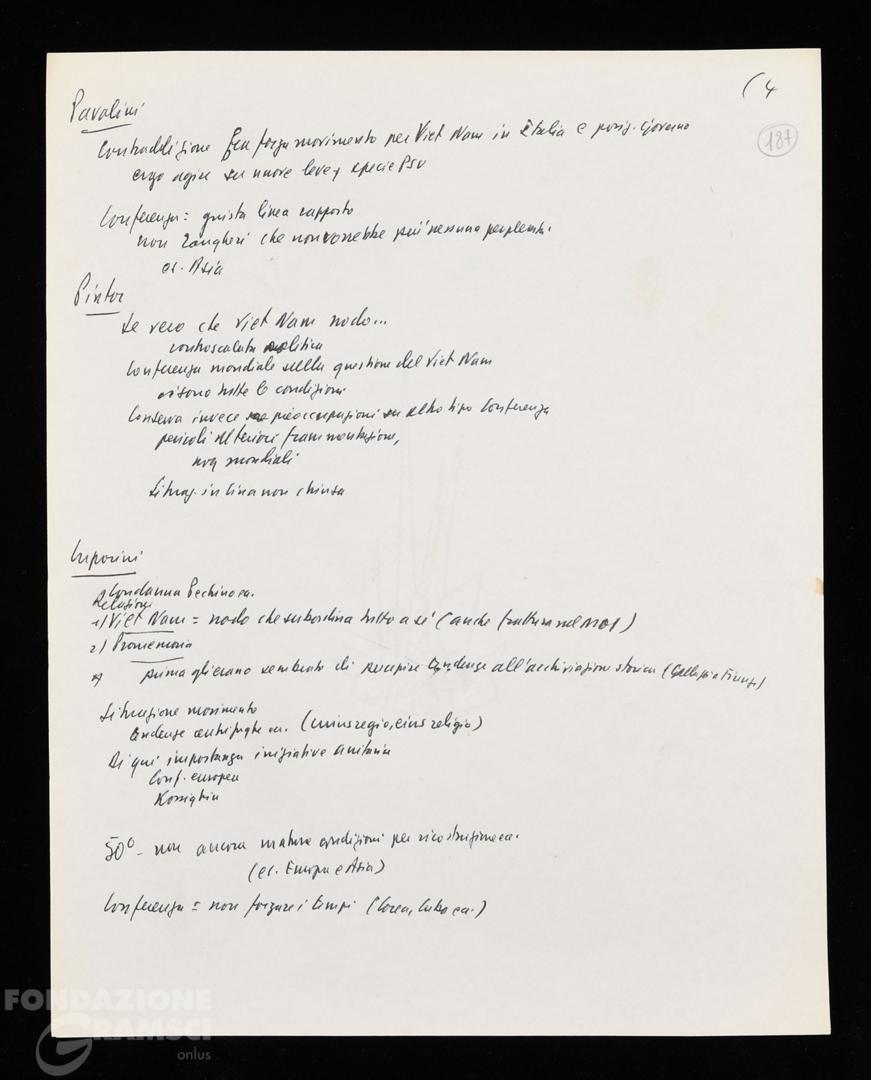 (4
187
Pavolini
Contraddizione fra forza movimento per Viet Nam in Italia e posiz. Governo
ergo agire su nuove leve, specie PSU
Conferenza = giusta linea rapporto
non Zangheri che non vorrebbe più nessuna perplessità.
es. Asia
Pintor
Se vero che Viet Nam nodo...
controscalata politica
Conferenza mondiale sulla questione del Viet Nam
ci sono tutte le condizioni
Conserva invece preoccupazioni su altro tipo Conferenza
pericoli ulteriori frammentazione,
non mondiali
Situaz. in Cina non chiusa
Luporini
Condanna Pechino ecc.
Relazione
1) Viet Nam = nodo che subordina tutto a sé (anche fratture nel MOI)
2) Promemoria
prima gli erano sembrato di tendenze all'archiviazione storica
Situazione movimento
tendenze centrifughe ecc. (cuius regio, eius religio)
Di qui importanza iniziative unitarie
Conf. europea
Kossighin
50° - non ancora mature condizioni per ricostruzione ecc.
(es. Europa e Asia)
Conferenza = non forzare i tempi (Corea, Cuba ecc.)
FONDAZIONE
GRAMSCI
onlus